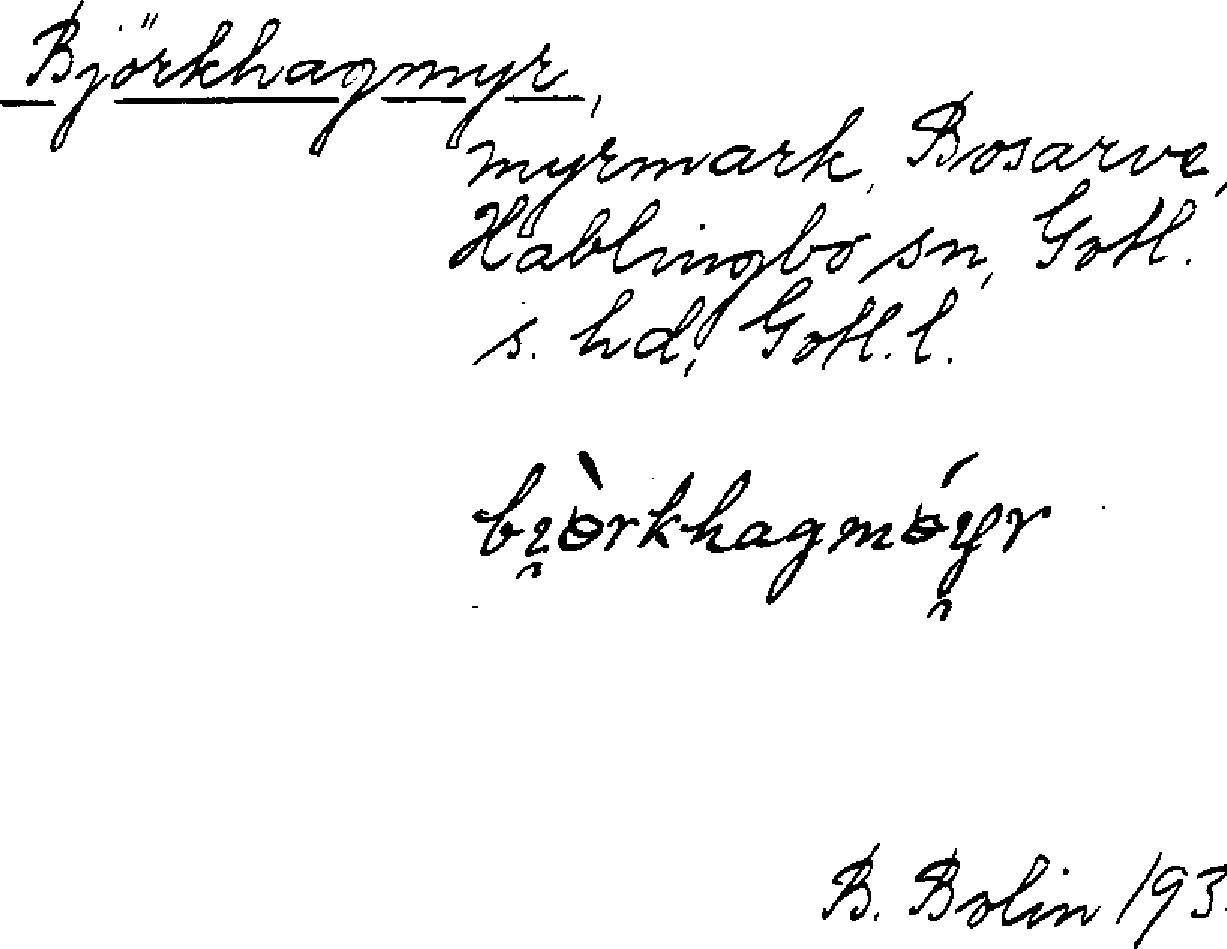 Björkhagmyr,
myrmark, Bosarve,
Hablingbo sn, Gotl.
s. hd, Gotl. l.
bı̯ɵ̀rkhagmɵ́y̯r
B. Bolin 193